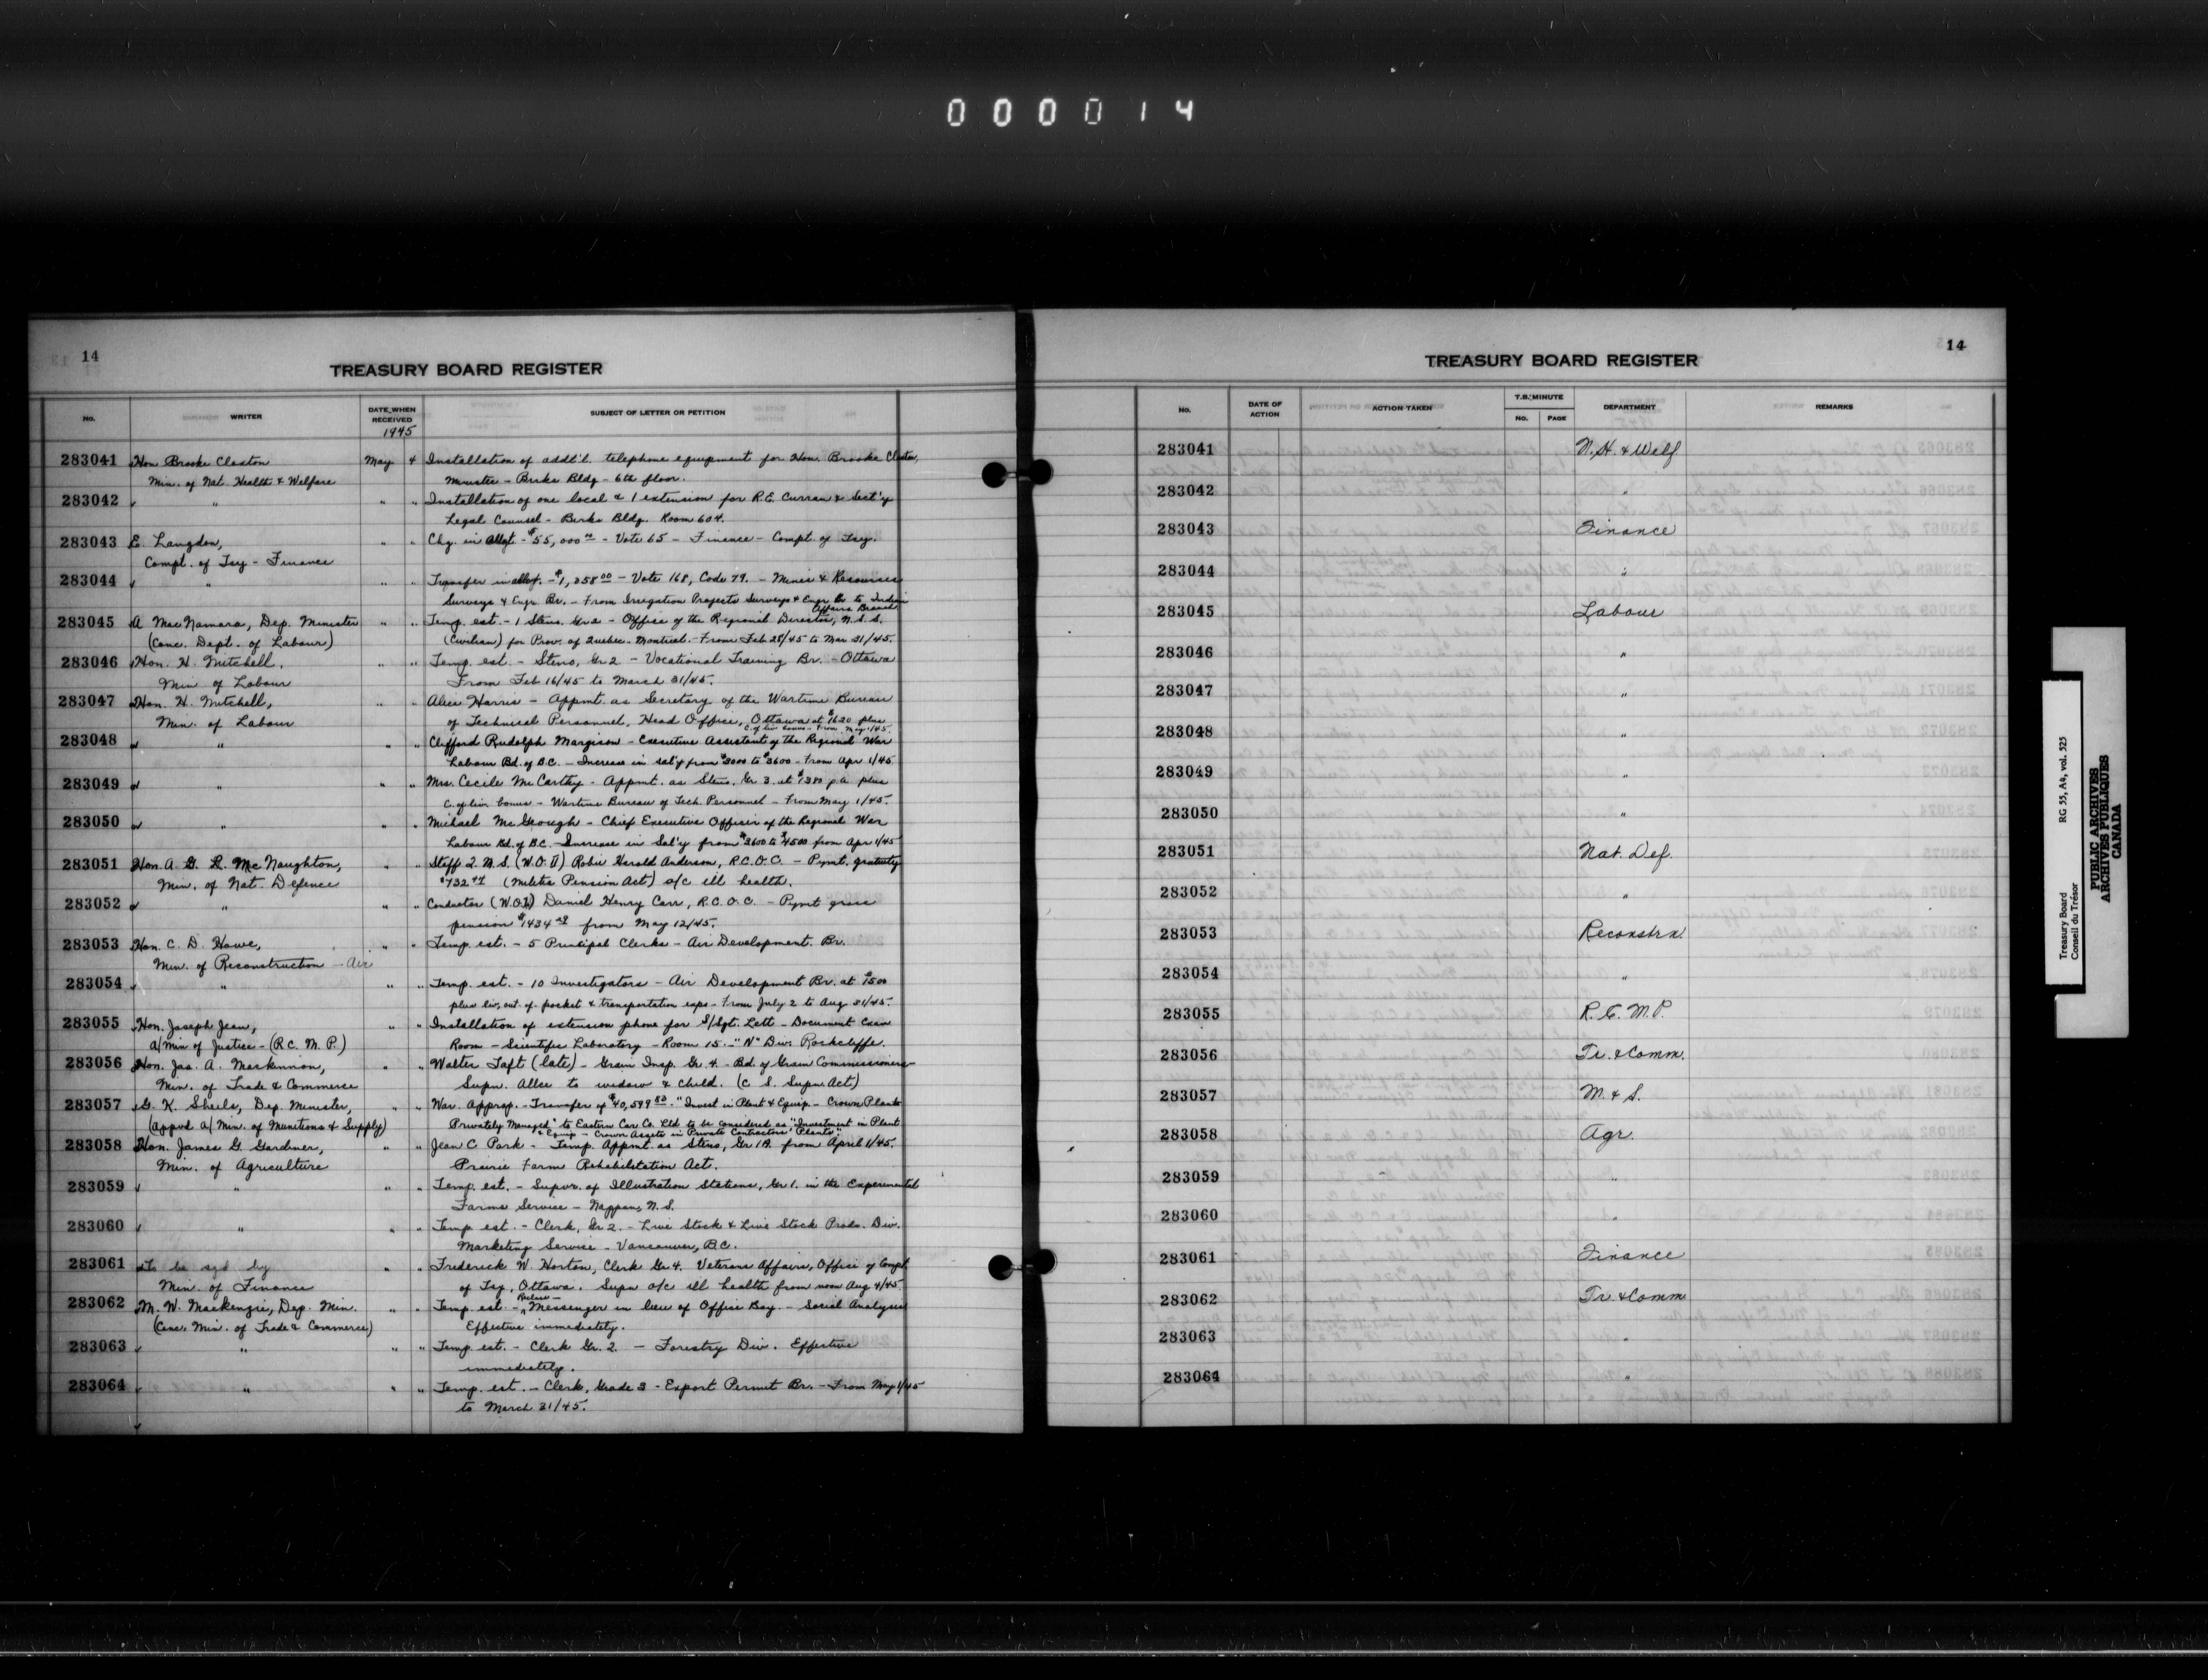 000014
14
TREASURY BOARD REGISTER
No. WRITER DATE WHEN RECEIVED SUBJECT OF LETTER OR PETITION
1945
283041 Hon Brooke Claxton May 4 Installation of addt'l. telephone equipment for Hon. Brooke Claxton,
Min. of Nat. Health & Welfare Minister - Birks Bldg - 6th floor.
283042 " " " Installation of one local & 1 extension for R.E. Curran & Sect'y
Legal Counsel - Birks Bldg. Room 604.
283043 E. Langdon, " " Chg. in Allgt. - $55,000 00 - Vote 65 - Finance - Compt. of Tsy.
Compt. of Tsy - Finance
283044 " " " Transfer in allot. - $1,258 00 - Vote 168, Code 79. - Mines & Resources
Surveys & Engr. Br. - From Irrigation Projects Surveys & Engr. Br to Indian
Affairs Branch
283045 A MacNamara, Dep. Minister " " Temp. est. - 1 Steno. Gr 2 - Office of the Regional Director, N.S.S.
(Conc. Dept. of Labour) (Civilian) for Prov. of Quebec - Montreal. - From Feb 28/45 to Mar 31/45.
283046 Hon. H. Mitchell, " " Temp. est. - Steno, Gr 2 - Vocational Training Br. - Ottawa
Min of Labour From Feb 16/45 to March 31/45.
283047 Hon. H. Mitchell, " " Alice Harris - Appmt. as Secretary of the Wartime Bureau
Min. of Labour of Technical Personnel, Head Office, Ottawa at $1620 plus
C. of liv. bonus - From May 1/45.
283048 " " " Clifford Rudolph Margison - Executive Assistant of the Regional War
Labour Bd. of B.C. - Increase in sal'y from $3000 to $3600 - From Apr 1/45
283049 " " " Mrs. Cecile McCarthy - Appmt. as Steno. Gr 3. at $1380 p.a. plus
C. of liv. bonus - Wartime Bureau of Tech. Personnel - From May 1/45.
283050 " " " Michael McGeough - Chief Executive Officer of the Regional War
Labour Bd. of B.C. - Increase in Sal'y from $3600 to $4500 from Apr 1/45
283051 Hon. A. G. L. McNaughton, " " Staff Q.M.S. (W.O.II) Robie Herold Anderson, R.C.O.C. - Pymt. gratuity
Min. of Nat. Defence $732 (Militia Pension Act) o/c ill health.
283052 " " " Conductor (W.O.I) Daniel Henry Carr, R.C.O.C. - Pymt gross
pension $1434 from May 12/45.
283053 Hon. C. D. Howe, " " Temp. est. - 5 Principal Clerks - Air Development. Br.
Min. of Reconstruction - Air
283054 " " " Temp. est. - 10 Investigators - Air Development Br. at $1500
plus liv, out. of. pocket & transportation exps - From July 2 to Aug 31/45.
283055 Hon. Joseph Jean, " " Installation of extension phone for S/Sgt. Lett - Document Exam
a/Min of Justice - (R.C.M.P.) Room - Scientific Laboratory - Room 15. - "N" Div. Rockcliffe.
283056 Hon. Jas. A. Mackinnon, " " Walter Taft (late) - Grain Insp. Gr 4. - Bd. of Grain Commissioners -
Min. of Trade & Commerce Supn. Allce to widow & child. (C. S. Supn Act)
283057 G. K. Sheils, Dep. Minister, " " War. Approp. - Transfer of $40,599 83. "Invest in Plant & Equip. - Crown Plants
(Appvd a/ Min. of Munitions & Supply) Privately Managed" to Eastern Car Co. Ltd to be considered as "Investment in Plant
& Equip - Crown Assets in Private Contractors' Plants"
283058 Hon. James G. Gardiner, " " Jean C. Park - Temp. Appmt. as Steno, Gr 1A. from April 1/45.
Min. of Agriculture Prairie Farm Rehabilitation Act.
283059 " " " Temp. est. - Supvr. of Illustration Stations, Gr 1. in the Experimental
Farms Service - Nappan, N.S.
283060 " " " Temp est. - Clerk, Gr 2. - Live Stock & Live Stock Prods. Div.
Marketing Service - Vancouver, B.C.
283061 To be sgd by " " Frederick W. Horton, Clerk Gr 4. Veterans Affairs, Office of Compt
Min. of Finance of Tsy, Ottawa. Supn o/c ill health from noon Aug 4/45.
283062 M. W. Mackenzie, Dep. Min. " " Temp. est. - Messenger in lieu of Office Boy. - Social Analysis
(Conc. Min. of Trade & Commerce) Effective immediately.
283063 " " " Temp. est. - Clerk Gr. 2. - Forestry Div. Effective
immediately.
283064 " " " Temp. est. - Clerk, Grade 3 - Export Permit Br. - From May 1/45
to March 31/45.
14
TREASURY BOARD REGISTER
No. DATE OF ACTION ACTION TAKEN T.B. MINUTE No. PAGE DEPARTMENT REMARKS
283041 N.H. & Welf
283042 "
283043 Finance
283044 "
283045 Labour
283046 "
283047 "
283048 "
283049 "
283050 "
283051 Nat. Def.
283052 "
283053 Reconstrn.
283054 "
283055 R.C.M.P.
283056 Tr. & Comm.
283057 M. & S.
283058 Agr.
283059 "
283060 "
283061 Finance
283062 Tr. & Comm
283063 "
283064 "
Treasury Board RG 55, A4, vol. 525
Conseil du Trésor
PUBLIC ARCHIVES
ARCHIVES PUBLIQUES
CANADA